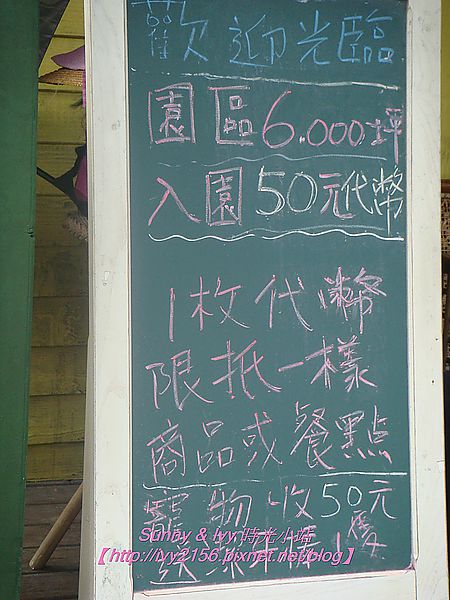 歡迎光臨
園區6.000坪
入園50元代幣
1枚代幣
限抵一樣
商品或餐點
寵物收50元
Sunny & Ivy 時光小站
【http://ivy2156.pixnet.net/blog】